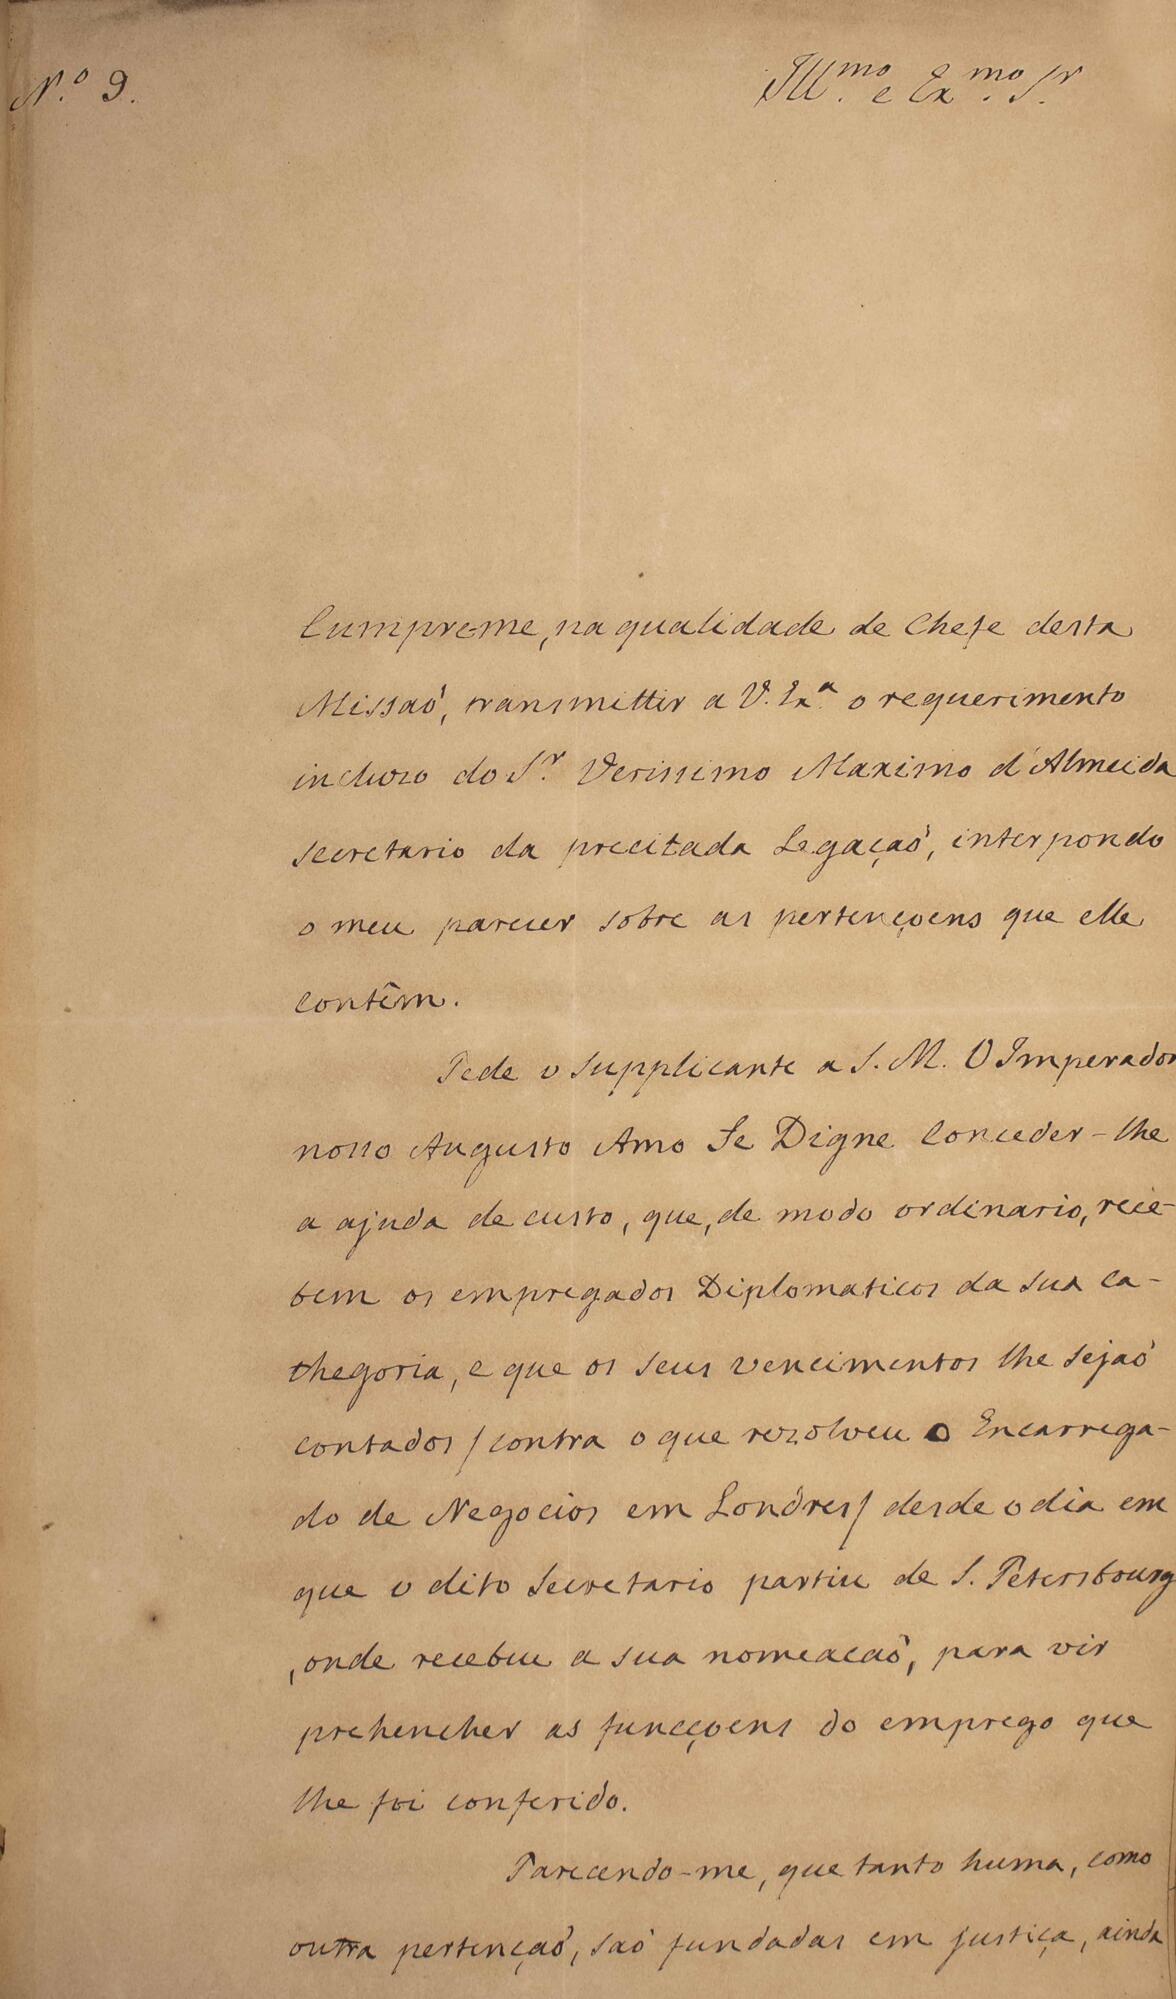 N.º 9.
Ill.mo e Ex.mo Sr.
Cumpre-me, na qualidade de Chefe desta
Missaõ, transmittir a V. Ex.ª o requerimento
incluzo do Sr. Verissimo Maximo d'Almeida
secretario da precitada Legaçaõ, interpondo
o meu parecer sobre as pertençoens que elle
contêm.
Pede o supplicante a S. M. O Imperador
nosso Augusto Amo Se Digne Conceder-lhe
a ajuda de custo, que, de modo ordinario, rece-
bem os empregados Diplomaticos da sua ca-
thegoria, e que os seus vencimentos lhe sejaõ
contados / contra o que rezolveu o Encarrega-
do de Negocios em Londres / desde o dia em
que o dito Secretario partiu de S. Petersbourg
, onde recebeu a sua nomeacaõ, para vir
prehencher as funcçoens do emprego que
lhe foi conferido.
Parecendo-me, que tanto huma, como
outra pertençaõ, saõ fundadas em justiça, ainda